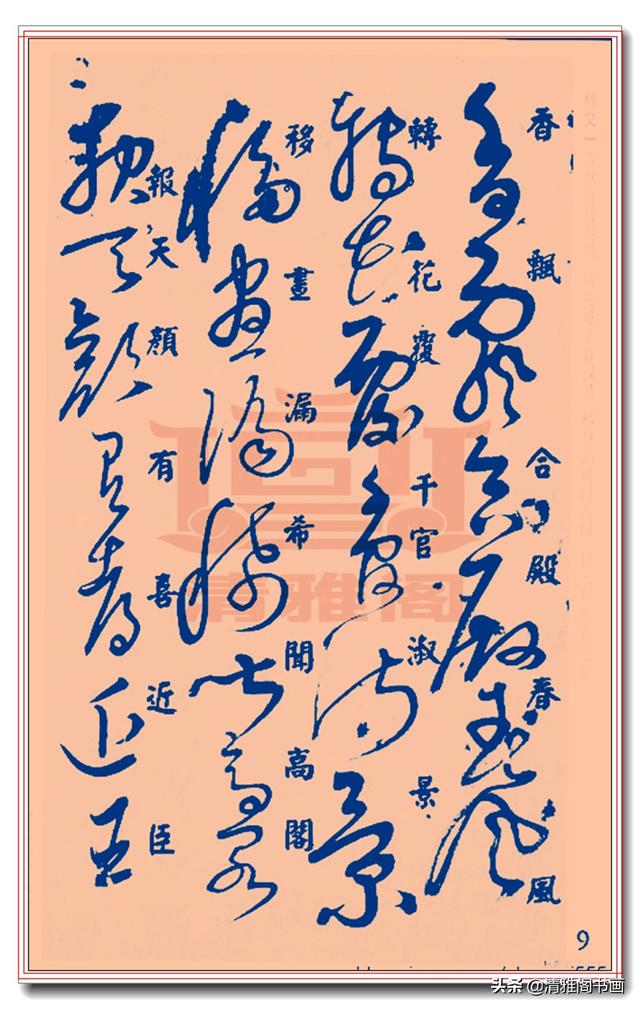 香飄合殿春風
轉花覆千官淑景
移晝漏希聞高閣
報天顏有喜近臣
清雅阁
9
头条 @清雅阁书画